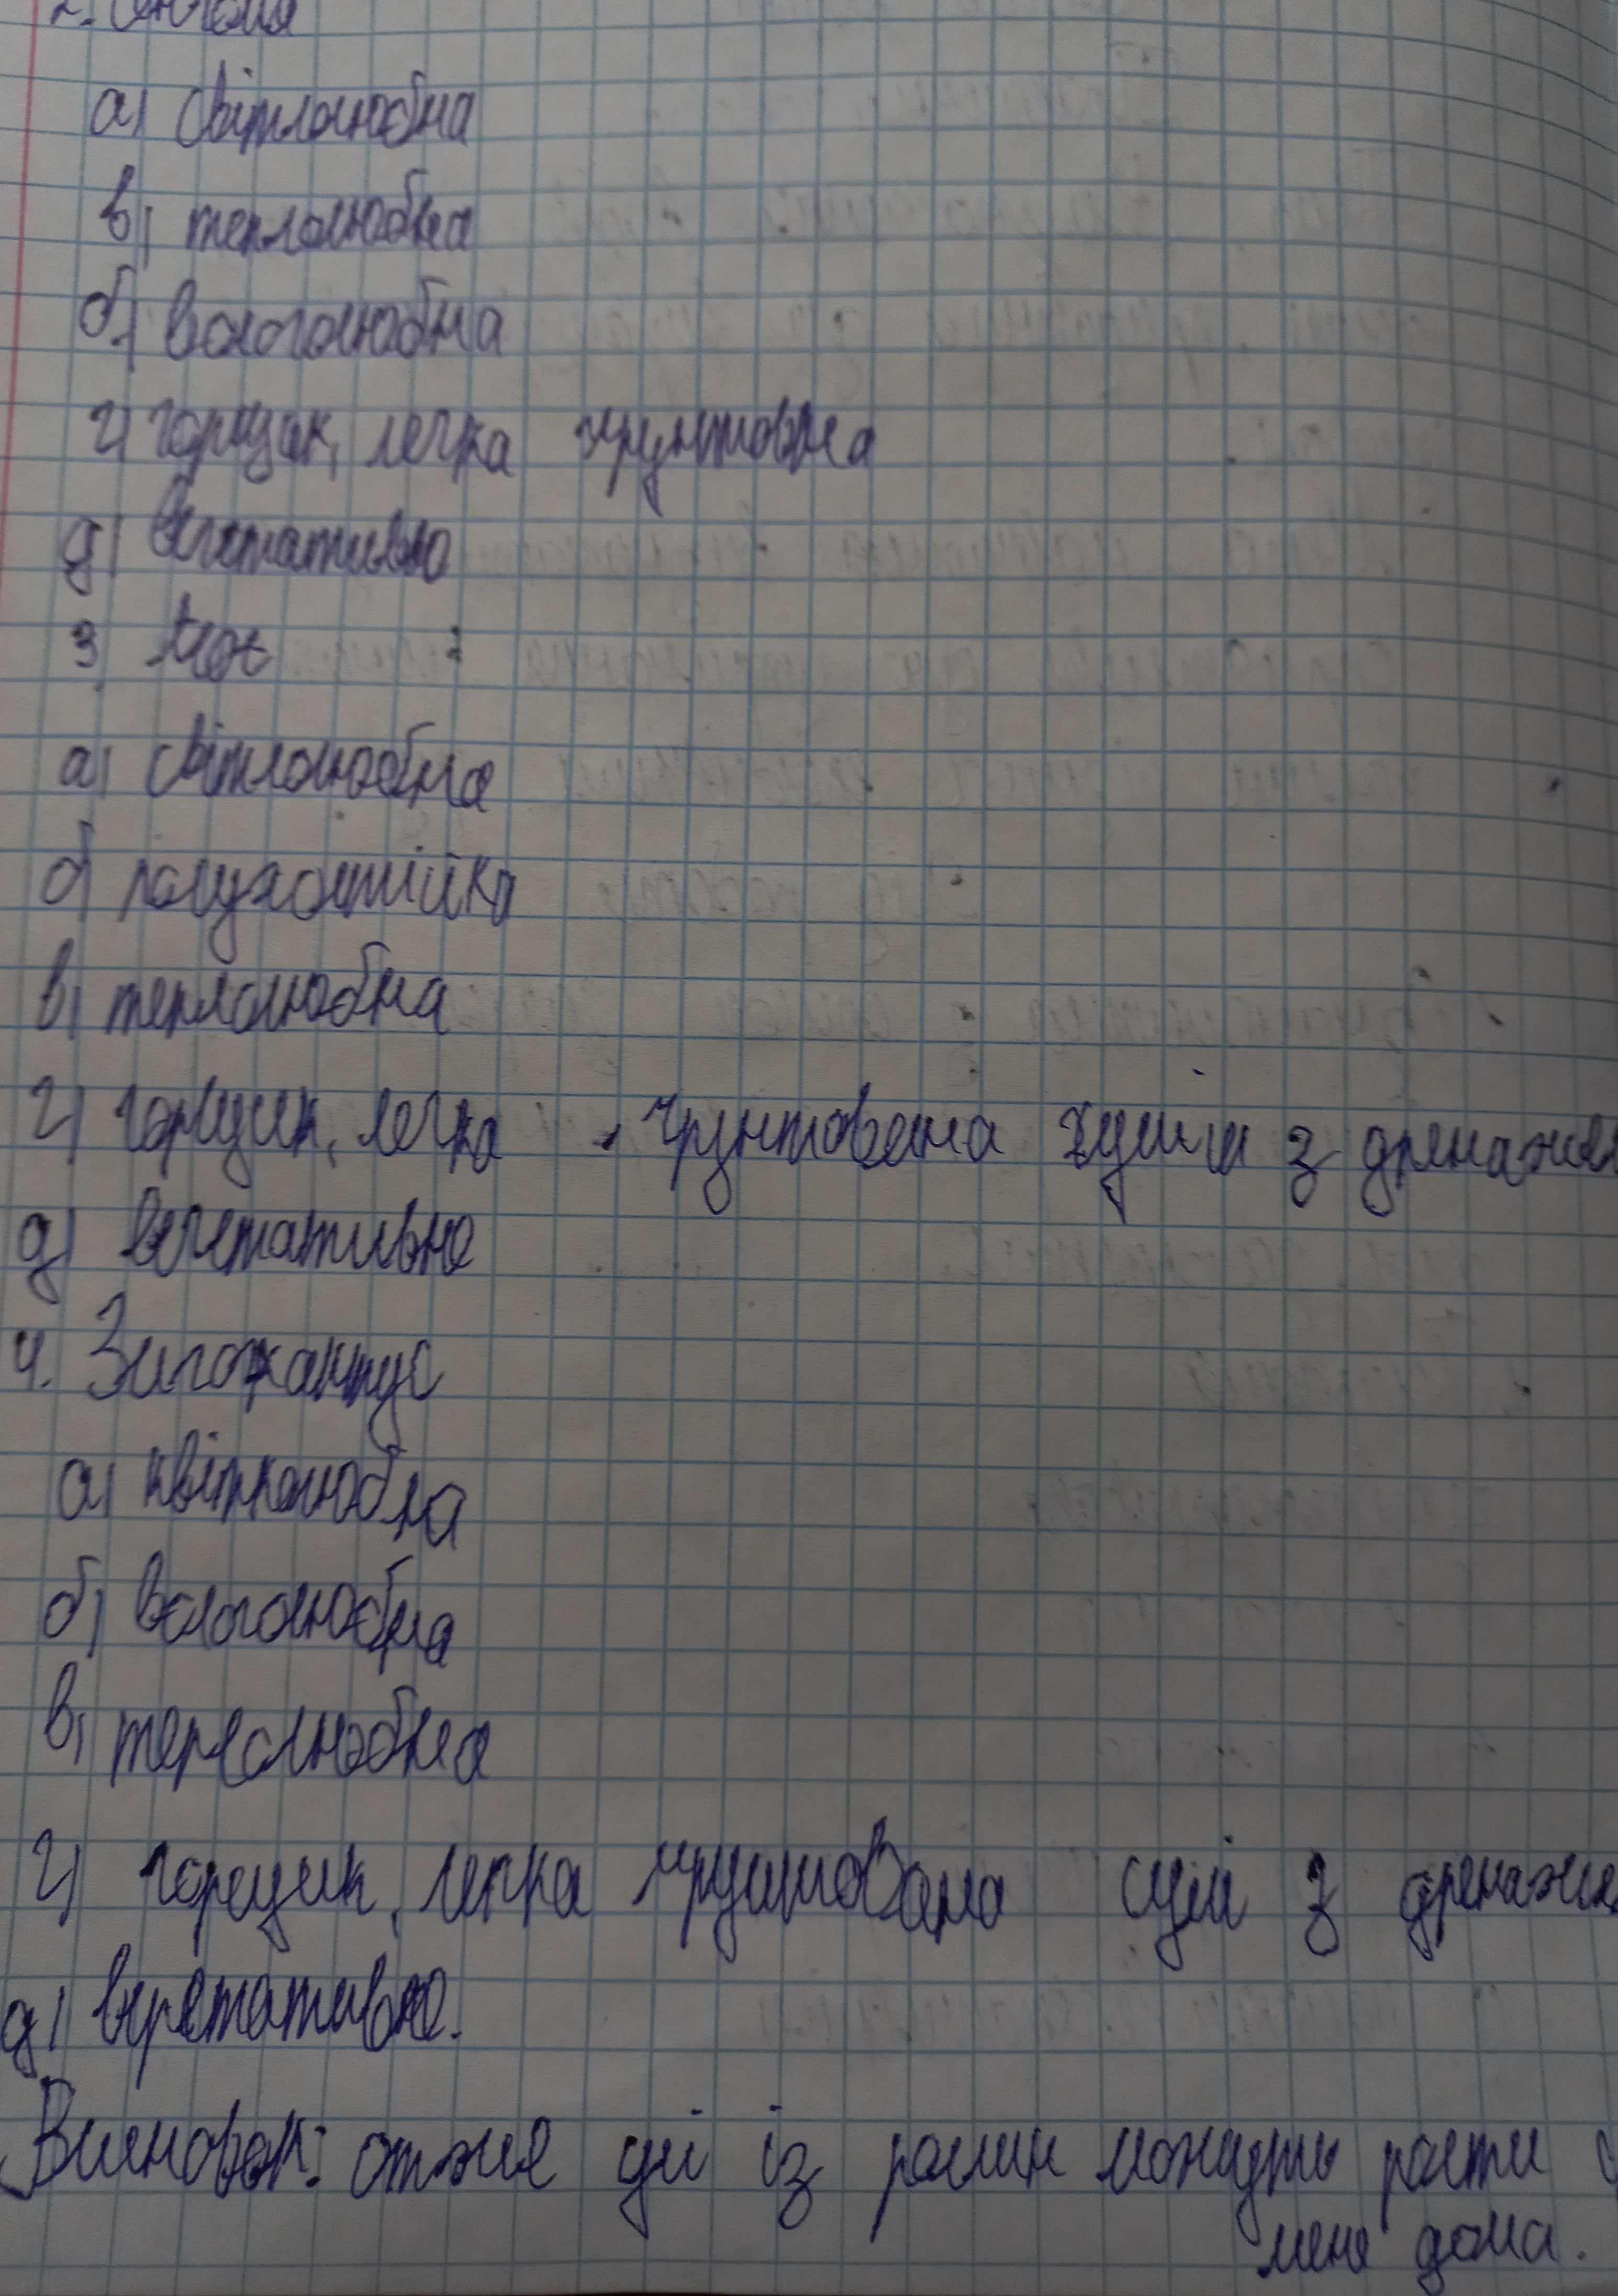 а) світлолюбна
в) теплолюбна
б) вологолюбна
г) горщик, легка грунтовна
д) вегетативно
3
а) світлолюбна
б)
в) теплолюбна
г) горщик, легка грунтована суміш з дренажем
д) вегетативно
4. Зигокактус
а)
б) вологолюбна
в) теплолюбна
г) горщик, легка грунтована суміш з дренажем
д) вегетативно.
Висновок: отже ці із рослин можуть рости у
мене дома.